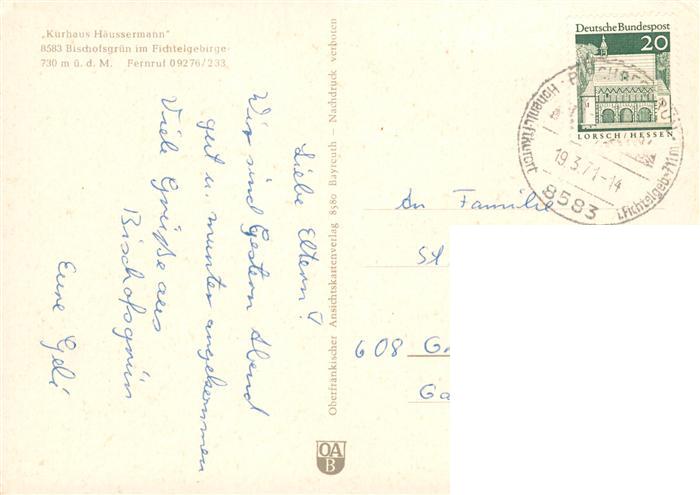 „Kurhaus Häussermann"
8583 Bischofsgrün im Fichtelgebirge
730 m ü. d. M. Fernruf 09276/233
Liebe Eltern!
Wir sind Gestern Abend
gut u. munter angekommen
Viele Grüße aus
Bischofsgrün
Eure Geli
Oberfränkischer Ansichtskartenverlag 8580 Bayreuth — Nachdruck verboten
OA
B
Deutsche Bundespost
20
LORSCH/HESSEN
Höhenluftkurort
19.3.71-14
i. Fichtelgeb.
8583
An Familie
St
608 G
Ga